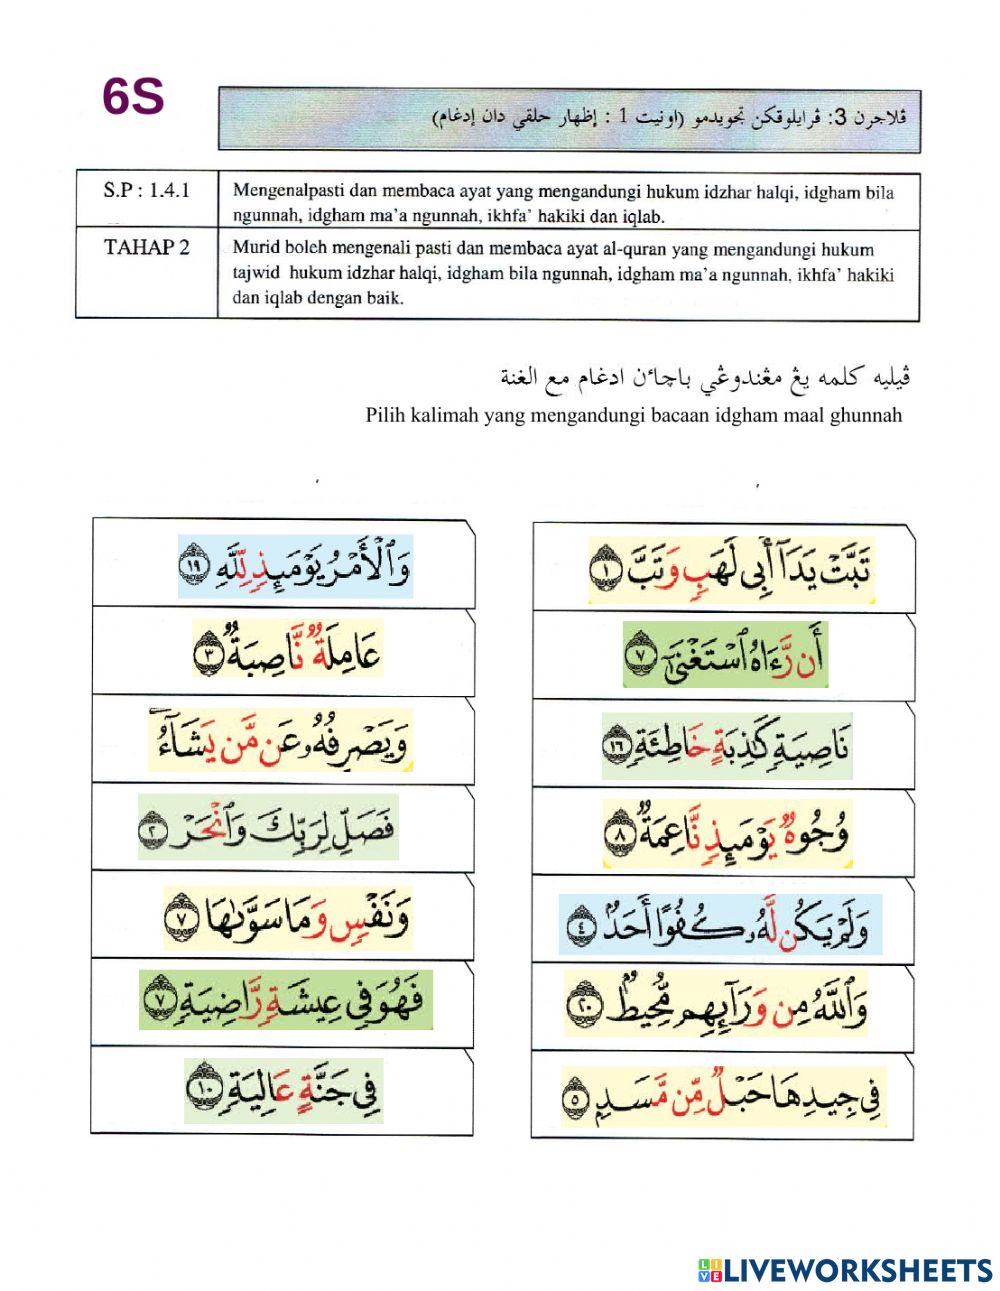 6S
ڤلاجرن 3: ڤرايلوقكن تجويدمو (اونيت 1 : إظهار حلقي دان إدغام)
S.P : 1.4.1
Mengenalpasti dan membaca ayat yang mengandungi hukum idzhar halqi, idgham bila
ngunnah, idgham ma’a ngunnah, ikhfa’ hakiki dan iqlab.
TAHAP 2
Murid boleh mengenali pasti dan membaca ayat al-quran yang mengandungi hukum
tajwid hukum idzhar halqi, idgham bila ngunnah, idgham ma’a ngunnah, ikhfa’ hakiki
dan iqlab dengan baik.
ڤيليه كلمه يڠ مڠندوڠي باچاءن ادغام مع الغنة
Pilih kalimah yang mengandungi bacaan idgham maal ghunnah
تَبَّتْ يَدَآ أَبِى لَهَبٍ وَتَبَّ ١
أَن رَّءَاهُ ٱسْتَغْنَىٰٓ ٧
نَاصِيَةٍ كَٰذِبَةٍ خَاطِئَةٍ ١٦
وُجُوهٌ يَوْمَئِذٍ نَّاعِمَةٌ ٨
وَلَمْ يَكُن لَّهُۥ كُفُوًا أَحَدٌۢ ٤
وَٱللَّهُ مِن وَرَآئِهِم مُّحِيطٌۢ ٢٠
فِى جِيدِهَا حَبْلٌ مِّن مَّسَدٍۭ ٥
وَٱلْأَمْرُ يَوْمَئِذٍ لِّلَّهِ ١٩
عَامِلَةٌ نَّاصِبَةٌ ٣
وَيَصْرِفُهُۥ عَن مَّن يَشَآءُ
فَصَلِّ لِرَبِّكَ وَٱنْحَرْ ٢
وَنَفْسٍ وَمَا سَوَّىٰهَا ٧
فَهُوَ فِى عِيشَةٍ رَّاضِيَةٍ ٧
فِى جَنَّةٍ عَالِيَةٍ ١٠
LIVEWORKSHEETS